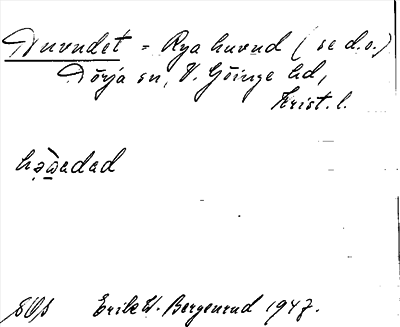 Huvudet = Rya huvud (se d.o.)
Dörja sn, V. Göinge hd,
Krist. l.
həwadad
Erik W. Bergenrud 1947.